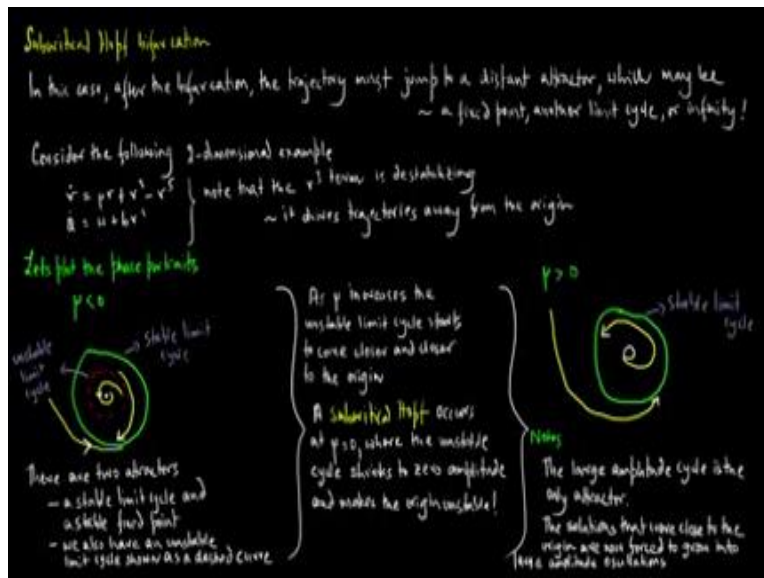 Subcritical Hopf bifurcation
In this case, after the bifurcation, the trajectory must jump to a distant attractor, which may be
~ a fixed point, another limit cycle, or infinity!
Consider the following 2-dimensional example
ṙ = μr + r³ - r⁵
θ̇ = ω + br²
note that the r³ term is destabilizing
~ it drives trajectories away from the origin
Lets plot the phase portraits
μ < 0
unstable
limit
cycle
stable limit
cycle
There are two attractors
- a stable limit cycle and
a stable fixed point
- we also have an unstable
limit cycle shown as a dashed curve
As μ increases the
unstable limit cycle starts
to come closer and closer
to the origin
A subcritical Hopf occurs
at μ=0, where the unstable
cycle shrinks to zero amplitude
and makes the origin unstable!
μ > 0
stable limit
cycle
Notes
The large amplitude cycle is the
only attractor.
The solutions that were close to the
origin are now forced to grow into
large amplitude oscillations